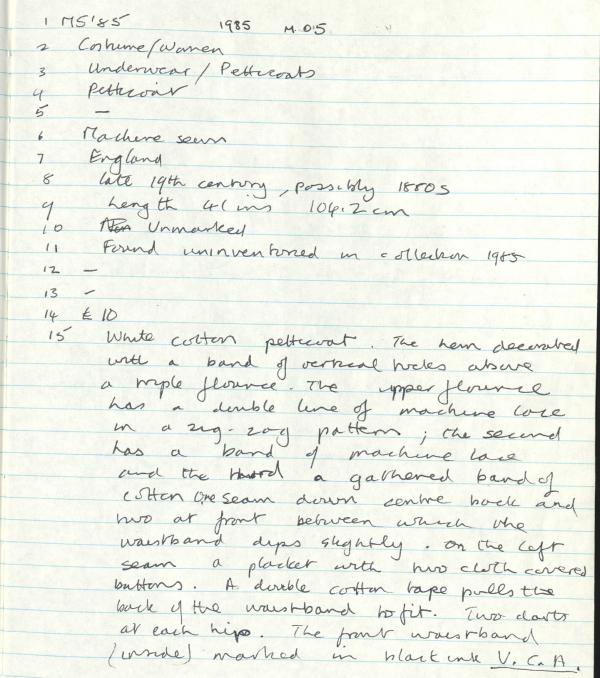 1 M5'85 1985 M.05
2 Costume/Women
3 Underwear/Petticoats
4 Petticoat
5 —
6 Machine sewn
7 England
8 late 19th century, possibly 1880s
9 Length 41 ins 104.2 cm
10 Unmarked
11 Found uninventoried in collection 1985
12 —
13 -
14 £10
15 White cotton petticoat. The hem decorated
with a band of vertical tucks above
a triple flounce. The upper flounce
has a double line of machine lace
in a zig-zag pattern; the second
has a band of machine lace
and the third a gathered band of
cotton One seam down centre back and
two at front between which the
waistband dips slightly. On the left
seam a placket with two cloth covered
buttons. A double cotton tape pulls the
back of the waistband to fit. Two darts
at each hip. The front waistband
(inside) marked in black ink V.C.A.